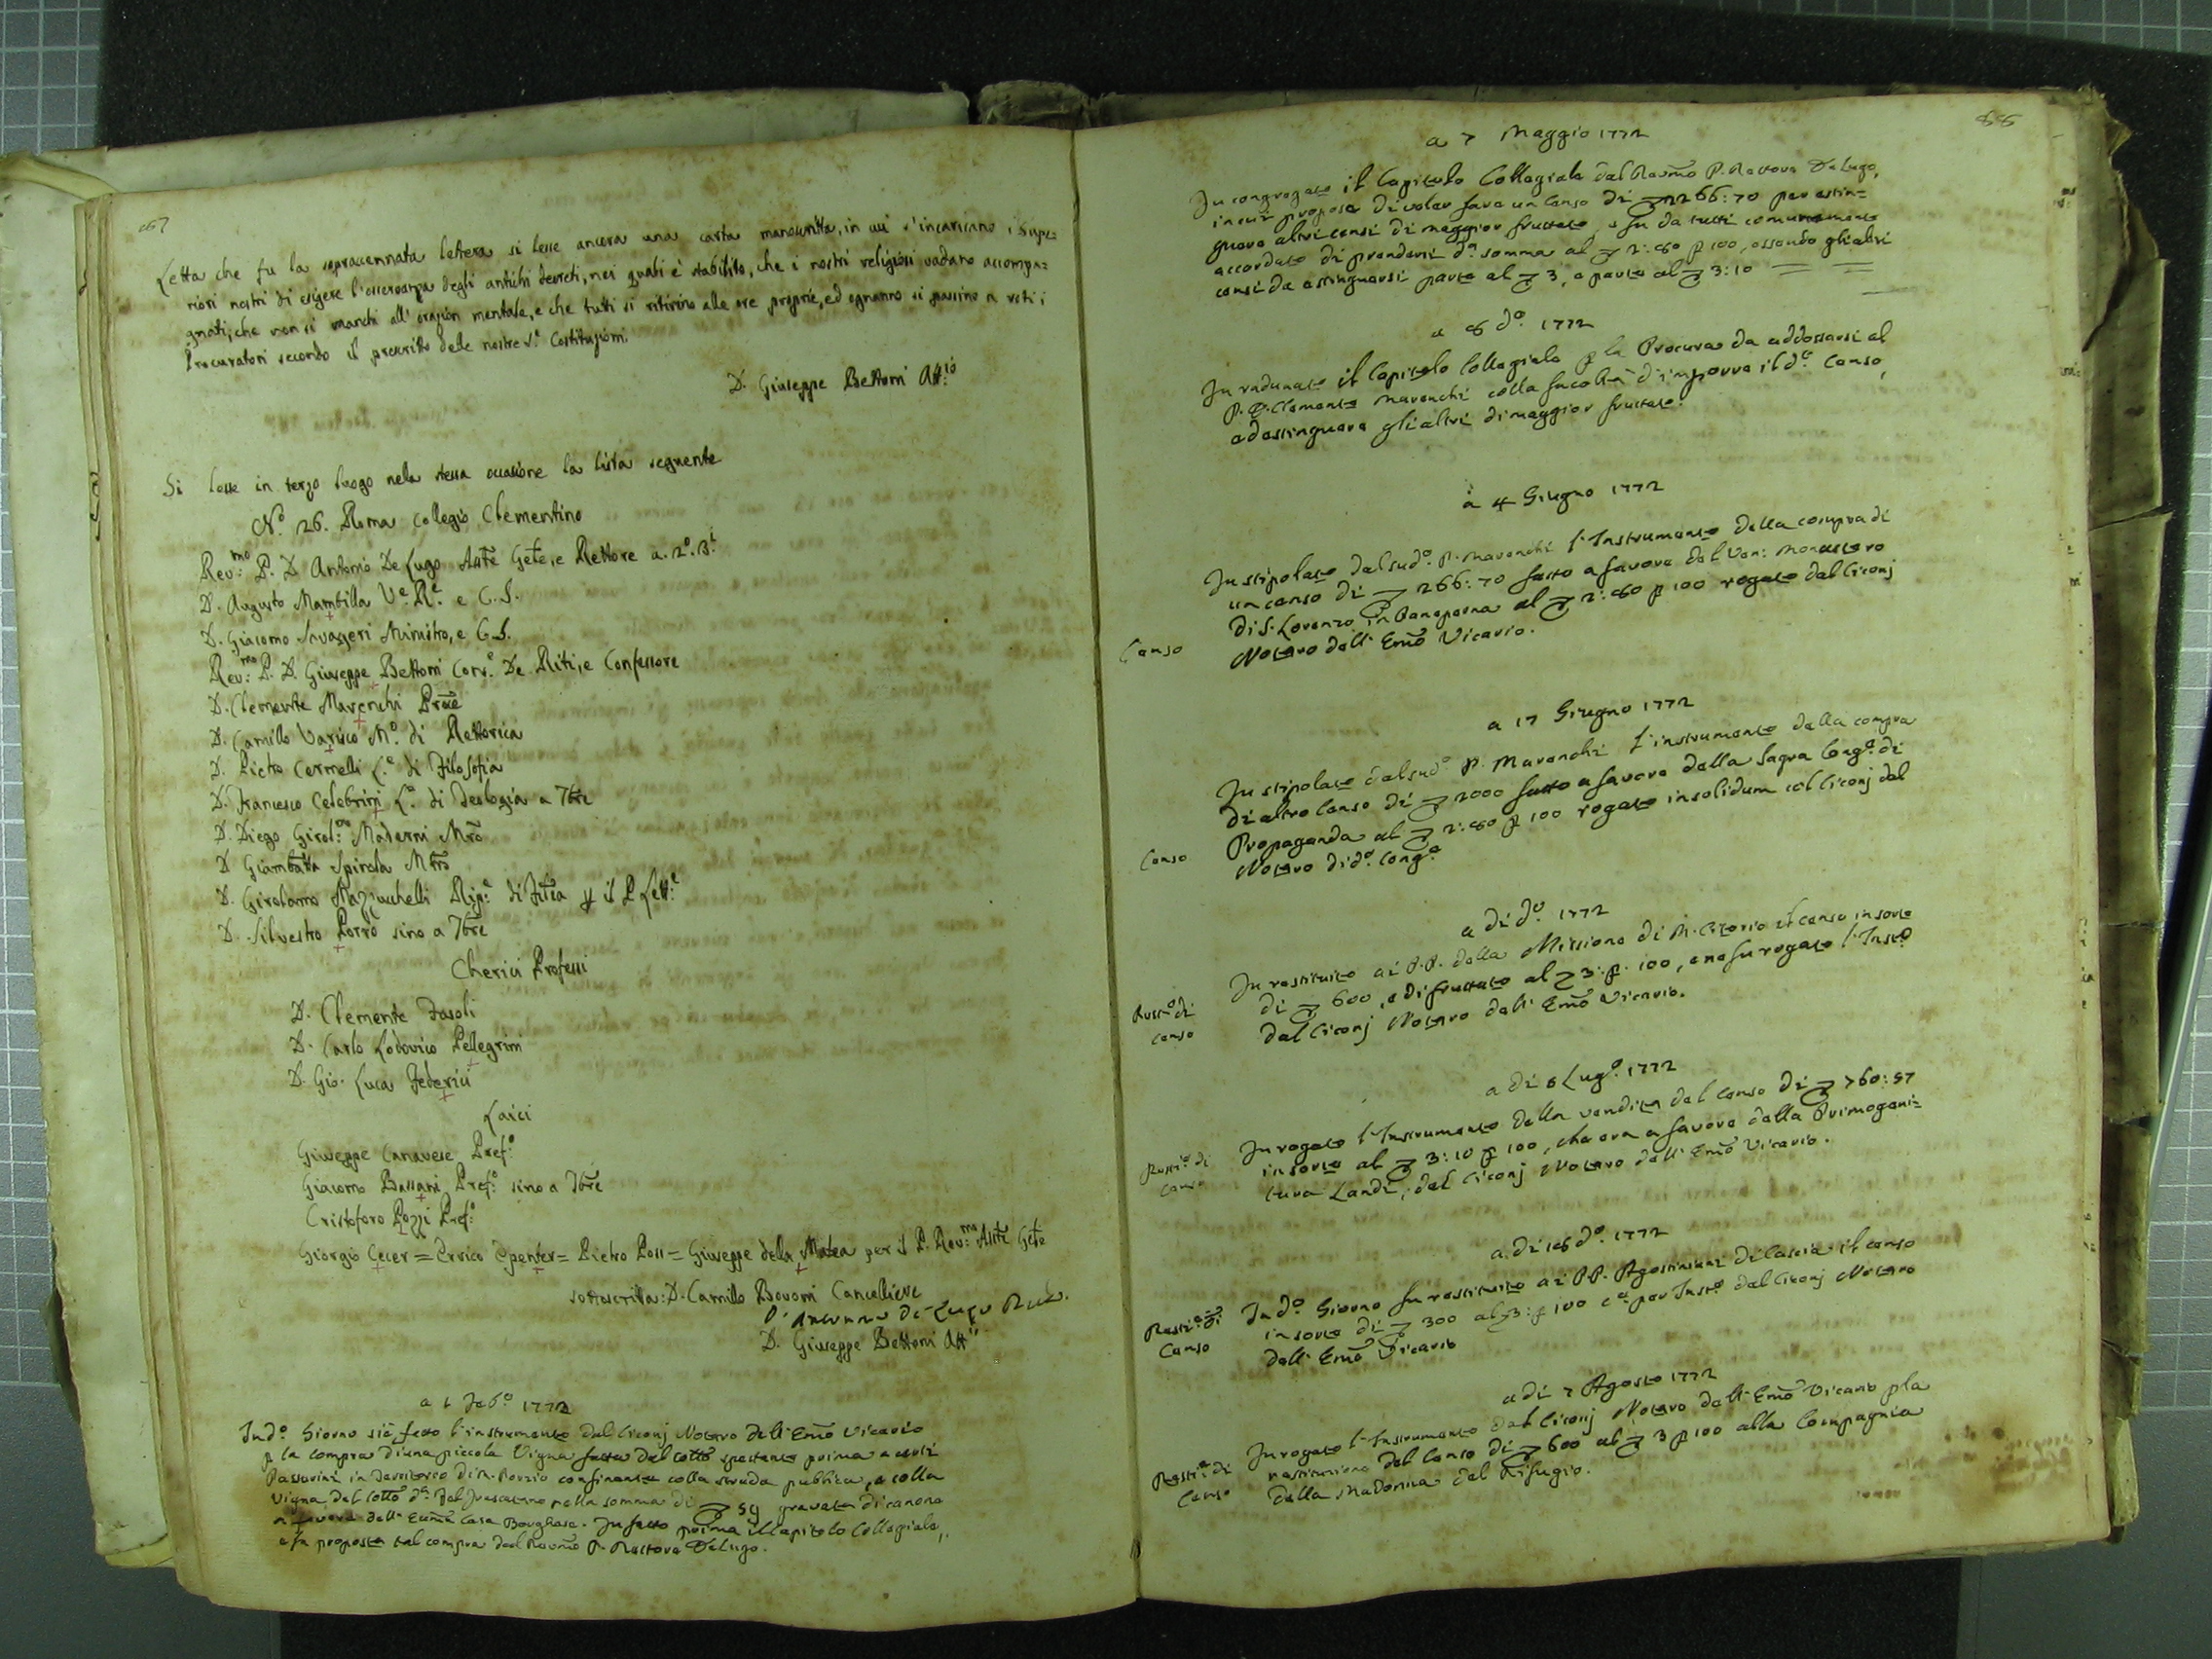 Letta che fu la sopraccennata lettera si lesse ancora una carta manoscritta, in cui s'incaricano i Supe=
riori nostri di esigere l'osservanza degli antichi decreti, nei quali è stabilito, che i nostri religiosi vadano accompa=
gnati, che non si manchi all' orazion mentale, e che tutti si ritirino alle ore proprie, ed ognanno si passino a voti i
Procuratori secondo il prescritto delle nostre S.e Costituzioni.
D. Giuseppe Bettoni Att.io
Si lesse in terzo luogo nela stessa occasione la lista seguente
N.o 26. Roma Collegio Clementino
Rev:mo P. D. Antonio De Lugo Asste Gnle, e Rettore a. 2.o
D. Augusto Mambilla V.e R.e e C. S.
D. Giacomo Savageri Ministro, e C. S.
Rev:mo P. D. Giuseppe Bettoni De Riti, e Confessore
D. Clemente Marenchi Proe
D. Camillo Varisco M.o di Rettorica
D. Pietro Cermelli L.e di Filosofia
D. Francesco Celebrini L.e di Teologia a 7bre
D. Diego Girol:mo Maderni Mro
D Giambatta Spinola Mtro
D. Girolamo Mazzucchelli Rip.e di Filfia p il P. Lett.e
D. Silvestro Porro sino a 7bre
Cherici Professi
D. Clemente Fasoli
D. Carlo Lodovico Pellegrini
D. Gio. Luca Federici
Laici
Giuseppe Canavese Prof.o
Giacomo Bassani Prof.o sino a 7bre
Cristoforo Pozzi Prof.o
Giorgio Cecer = Errico Epenter = Pietro Poss = Giuseppe della Matea per il P. Rev:mo Asste Gnle
sottoscritta: D. Camillo Bovoni Cancelliere
D. Antonio De Lugo Rett.
D. Giuseppe Bettoni Att.io
a 1 Feb.o 1772
In d.o Giorno si è fatto l'instrumento dal Ciconj Notaro dell' Emo Vicario
p la compra d'una piccola Vigna spettante prima a certi
Passarini in territorio di M. Porzio confinante colla strada pubblica, e colla
Vigna del d.a del Frascatino nella somma di 59 gravata di canone
a favore dell' Ecma Casa Borghese. Fu fatto prima il Capitolo Collegiale,
e fu proposta tal compra dal Revmo P. Rettore DeLugo.
a 7 Maggio 1772
Fu congregato il Capitolo Collegiale dal Revmo P. Rettore DeLugo,
in cui propose di voler fare un Censo di 2266:70 per estin=
guere altri censi di maggior fruttato, e fu da tutti comunemente
accordato di prendersi d.a somma al 2:80 p 100, essendo gli altri
censi da estinguersi parte al 3, e parte al 3:10
a 8 d.o 1772
Fu radunato il Capitolo Collegiale p la Procura da addossarsi al
P. D. Clemente Marenchi colla facoltà d'imporre il d.o Censo,
ed estinguere gli altri di maggior fruttato.
a 4 Giugno 1772
Fu stipolato dal sud.o P. Marenchi l'Instrumento della compra di
un censo di 266:70 fatto a favore del Ven: Monastero
di S. Lorenzo in Paneperna al 2:80 p 100 rogato dal Ciconj
Censo
Notaro dell' Emo Vicario.
a 17 Giugno 1772
Fu stipolato dal sud.o P. Marenchi l'instrumento della compra
di altro Censo di 2000 fatto a favore della Sagra Cong.e di
Propaganda al 2:80 p 100 rogato insolidum col Ciconj dal
Censo
Notaro di d.a Cong.e
a di d.o 1772
Fu restituito ai P.P. della Missione di M. Citorio il censo in sorte
di 600, e di fruttato al 3: p. 100, e ne fu rogato l'Inst.o
dal Ciconj Notaro dell' Emo Vicario.
Rest.e di
censo
a di 8 Lug.o 1772
Fu rogato l'Instrumento della vendita del Censo di 760:57
in sorte al 3:10 p 100, che era a favore della Primogeni=
tura Landi, dal Ciconj Notaro dell' Emo Vicario.
Resti.e di
Censo
a di 18 d.o 1772
In d.o Giorno fu restituito ai PP. Agostiniani di Cascia il censo
in sorte di 300 al 3: p 100 per Inst.o dal Ciconj Notaro
dell' Emo Vicario
Resti.e di
Censo
a di 7 Agosto 1772
Fu rogato l'Instrumento dal Ciconj Notaro dell' Emo Vicario p la
restituzione del Censo di 600 al 3 p 100 alla Compagnia
della Madonna del Rifugio.
Resti.e di
Censo